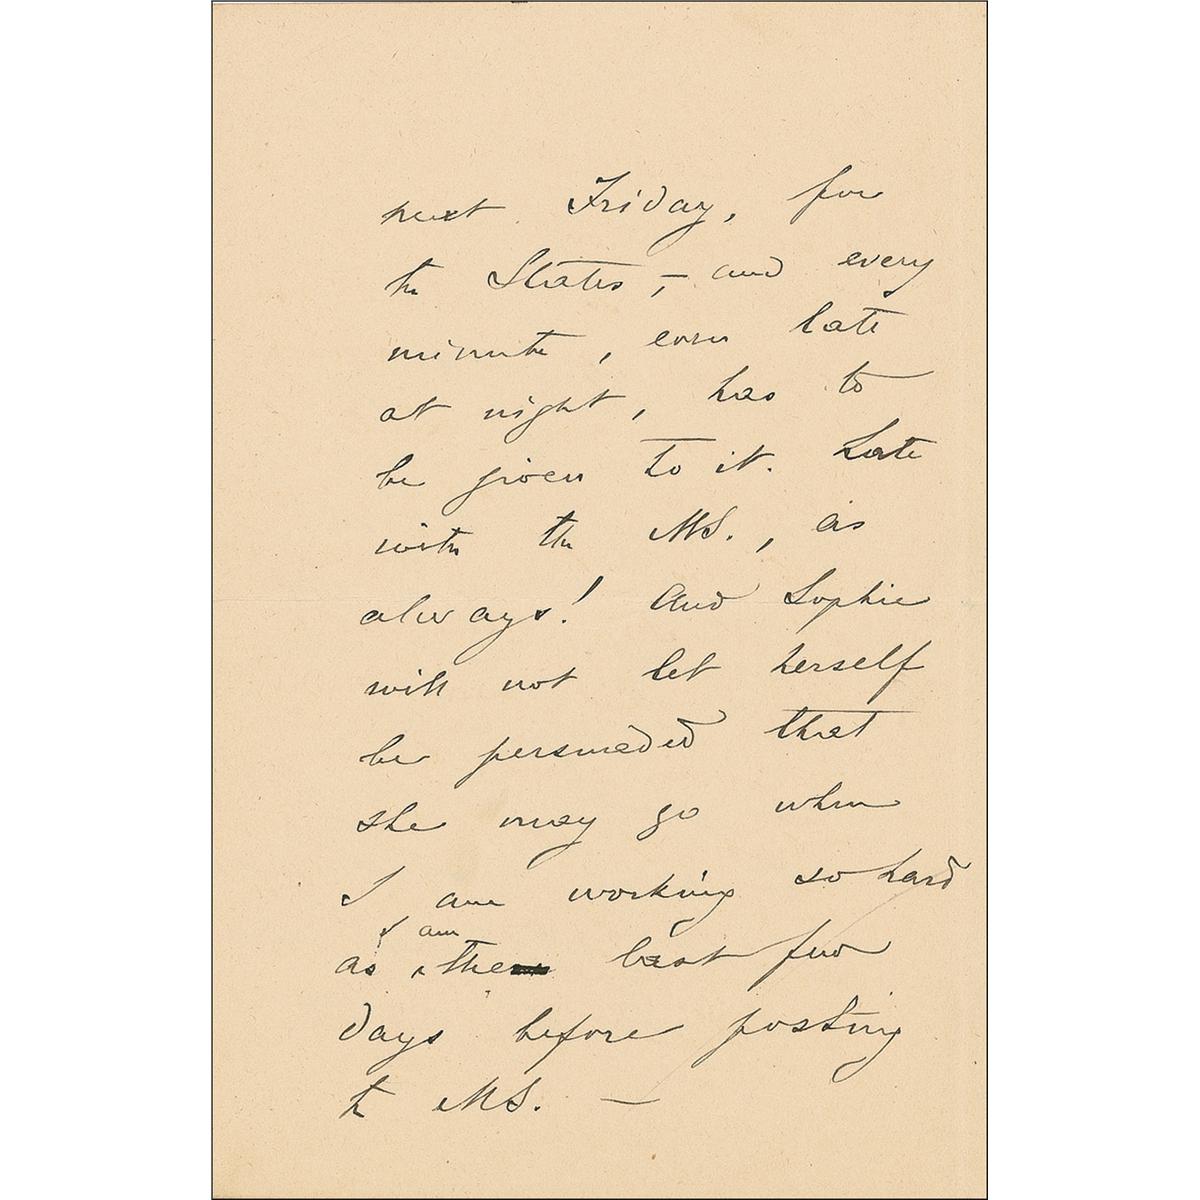 next Friday, for
the States, – and every
minute, even late
at night, has to
be given to it. Late
with the MS., as
always! And Sophie
will not let herself
be persuaded that
she may go when
I am working so hard
I am
as the last few
days before posting
the MS. —